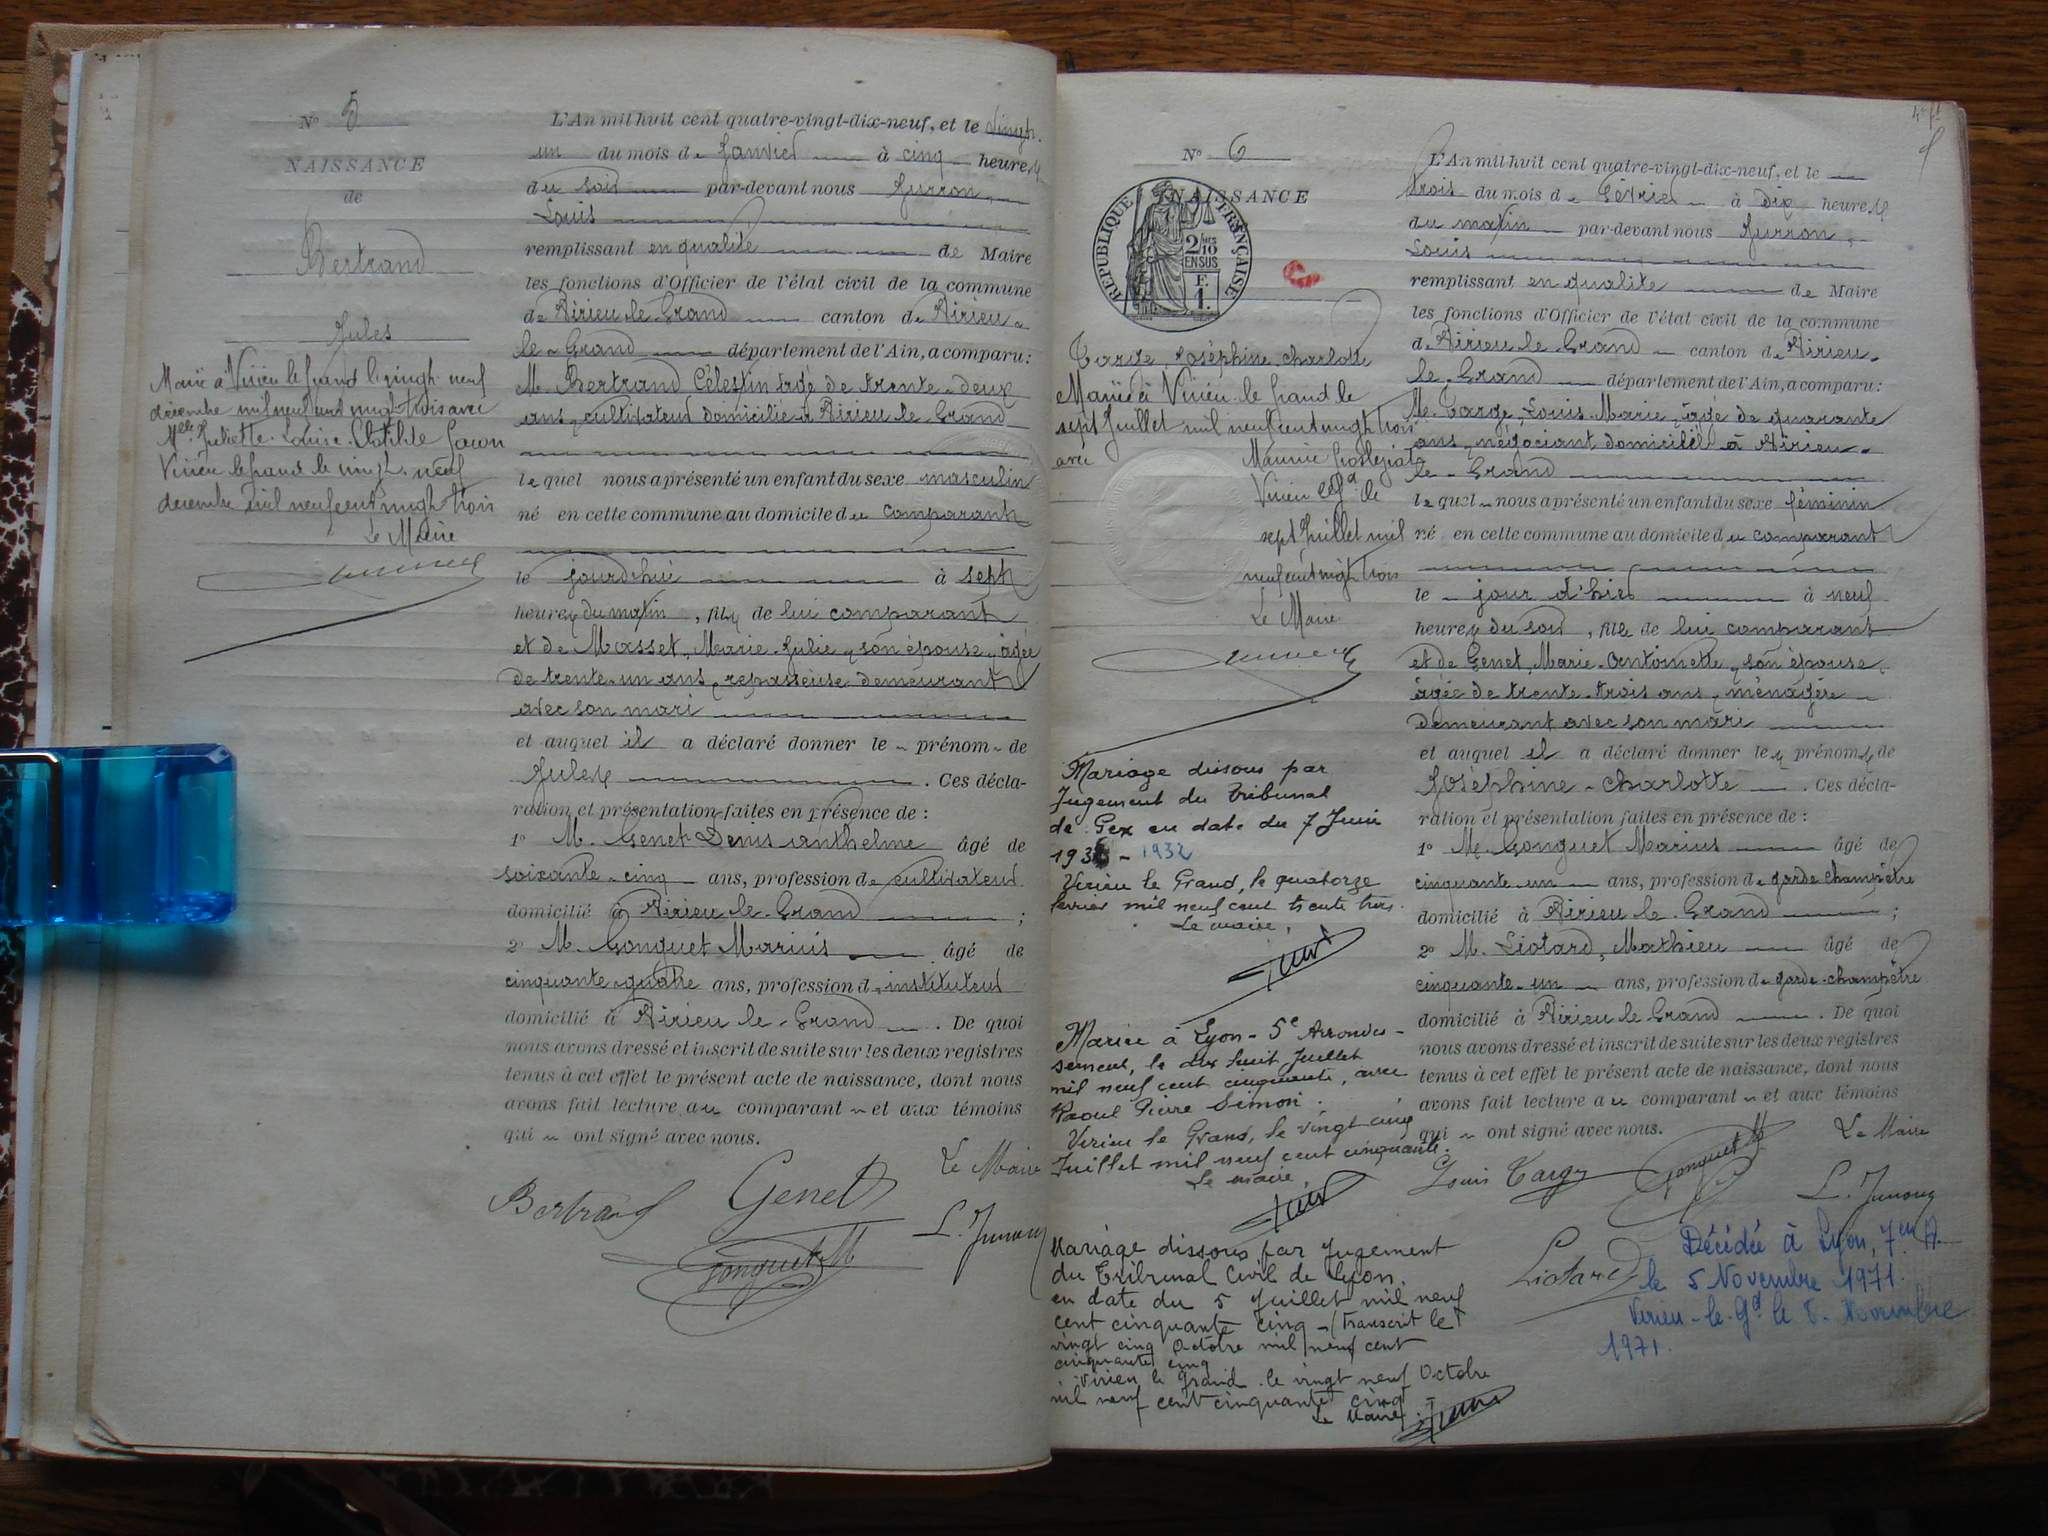 N° 5
NAISSANCE
de
Bertrand
Jules
Marié à Virieu le Grand le vingt neuf
décembre mil neuf cent vingt trois avec
Melle Juliette Louise Clotilde
Virieu le grand le vingt neuf
décembre mil neuf cent vingt trois
Le Maire
L'An mil huit cent quatre-vingt-dix-neuf, et le vingt-
un du mois de Janvier à cinq heures
du soir par-devant nous
Louis
remplissant en qualité de Maire
les fonctions d'Officier de l'état civil de la commune
de Virieu-le-Grand canton de Virieu-
le-Grand département de l'Ain, a comparu:
M. Bertrand Célestin âgé de trente-deux
ans, cultivateur domicilié à Virieu-le-Grand
lequel nous a présenté un enfant du sexe masculin
né en cette commune au domicile du comparant
le jourd'hui à sept
heures du matin, fils de lui comparant
et de Masset, Marie-Julie, son épouse, âgée
de trente-un ans, repasseuse demeurant
avec son mari
et auquel il a déclaré donner le prénom de
Jules. Ces décla-
ration et présentation faites en présence de :
1° M. Genet Denis Anthelme âgé de
soixante-cinq ans, profession de cultivateur
domicilié à Virieu-le-Grand ;
2° M. Gonguet Marius âgé de
cinquante-quatre ans, profession d'instituteur
domicilié à Virieu-le-Grand. De quoi
nous avons dressé et inscrit de suite sur les deux registres
tenus à cet effet le présent acte de naissance, dont nous
avons fait lecture au comparant et aux témoins
qui ont signé avec nous.
Le Maire
Bertrand Genet
Gonguet M
N° 6
NAISSANCE
REPUBLIQUE FRANÇAISE
2/10 EN SUS
F. 1.
Targe, Joséphine Charlotte
Mariée à Virieu le grand le
sept Juillet mil neuf cent vingt trois
avec Maurice
Virieu le Gd le
sept Juillet mil
neuf cent vingt trois
Le Maire
Mariage dissous par
Jugement du Tribunal
de Gex en date du 7 Juin
1932
Virieu le Grand, le quatorze
février mil neuf cent trente trois.
Le maire,
Mariée à Lyon - 5e Arrondis-
sement, le dix huit Juillet
mil neuf cent cinquante, avec
Raoul Pierre Simon.
Virieu le Grand, le vingt cinq
Juillet mil neuf cent cinquante.
Le maire,
Mariage dissous par Jugement
du Tribunal Civil de Lyon.
en date du 5 Juillet mil neuf
cent cinquante cinq - (Transcrit le
vingt cinq Octobre mil neuf cent
cinquante cinq
Virieu le Grand le vingt neuf Octobre
mil neuf cent cinquante cinq
Le Maire
L'An mil huit cent quatre-vingt-dix-neuf, et le
trois du mois de Février à dix heures
du matin par-devant nous
Louis
remplissant en qualité de Maire
les fonctions d'Officier de l'état civil de la commune
de Virieu-le-Grand canton de Virieu-
le-Grand département de l'Ain, a comparu:
M. Targe, Louis-Marie, âgé de quarante
ans, négociant domicilié à Virieu-
le-Grand
lequel nous a présenté un enfant du sexe féminin
né en cette commune au domicile du comparant
le jour d'hier à neuf
heures du soir, fille de lui comparant
et de Genet, Marie-Antoinette, son épouse,
âgée de trente-trois ans, ménagère
demeurant avec son mari
et auquel il a déclaré donner les prénoms de
Joséphine-Charlotte. Ces décla-
ration et présentation faites en présence de :
1° M. Gonguet Marius âgé de
cinquante-un ans, profession de garde champêtre
domicilié à Virieu-le-Grand ;
2° M. Liotard, Mathieu âgé de
cinquante-un ans, profession de garde-champêtre
domicilié à Virieu-le-Grand. De quoi
nous avons dressé et inscrit de suite sur les deux registres
tenus à cet effet le présent acte de naissance, dont nous
avons fait lecture au comparant et aux témoins
qui ont signé avec nous.
Le Maire
Louis Targe Gonguet M
Liotard
Décédée à Lyon, 7em A.
le 5 Novembre 1971.
Virieu-le-Gd le 8 Novembre
1971.